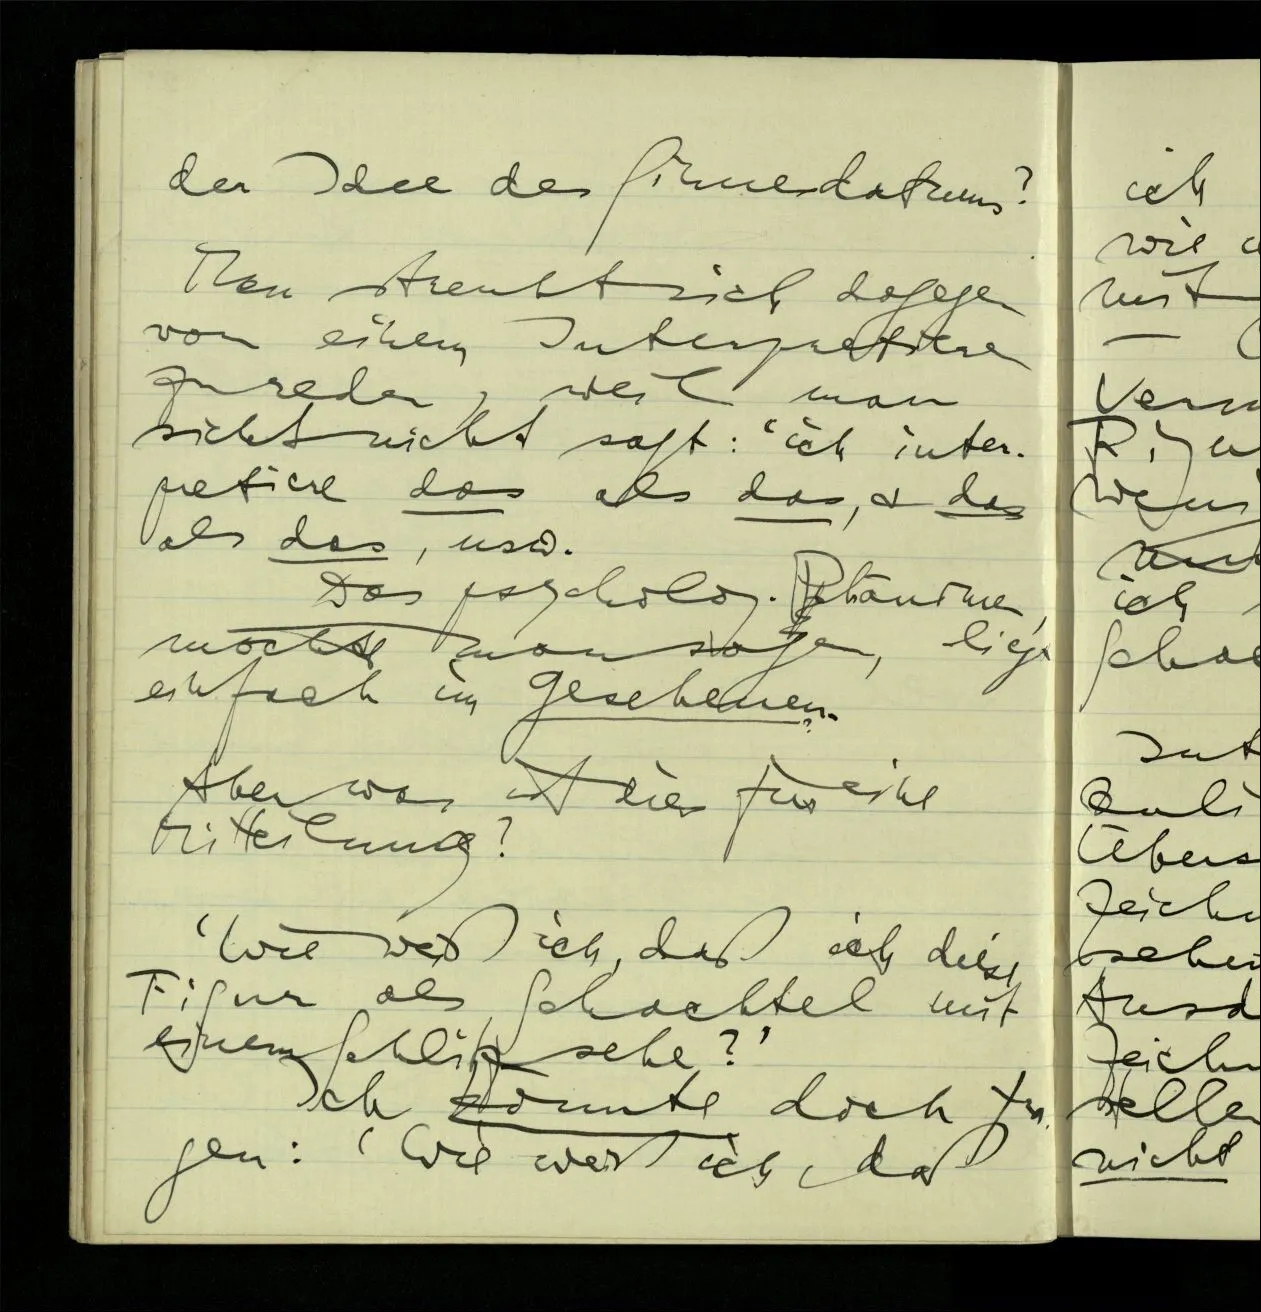 der Idee des Sinnesdatums?
Man sträubt sich dagegen
von einem Interpretieren
zu reden, weil man
sicht nicht sagt: “ich inter-
pretiere das als das, & das
als das, usw.
Das psycholog. Phänomen,
möchte man sagen, liegt
einfach im Gesehenen.
Aber was ist dies für eine
Mitteilung?
‘Wie weiß ich, daß ich diese
Figur als Schachtel mit
einem Schlitz sehe?’
Ich könnte doch fra-
gen: ‘Wie weiß ich, daß
ich
wie
mit
–
ich
nicht